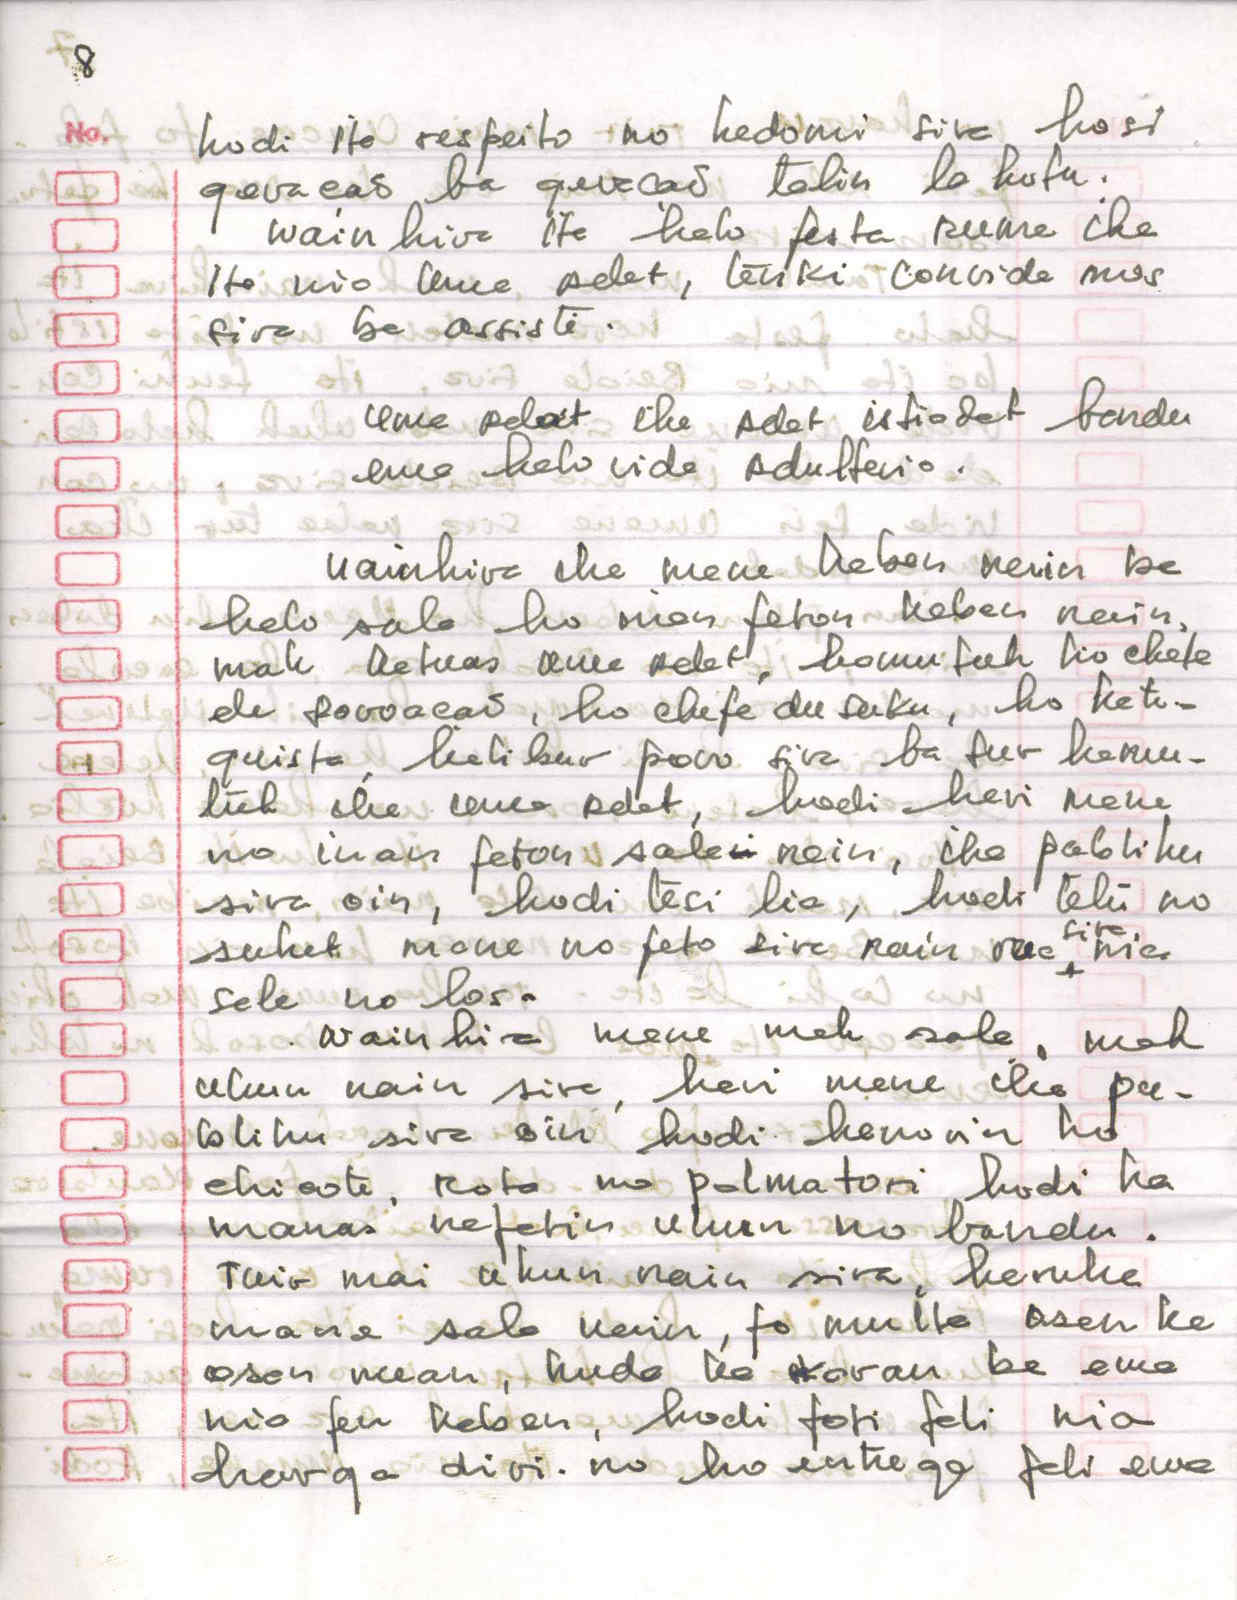 8
No.
hodi ita respeito no hadomi sira hosi
geracaŏ ba geracaŏ talin la kotu.
Wainhira ita halo festa ruma iha
ita nia uma adat, tenki convida mos
sira ba assisti.
Uma adat iha adat istiadat bandu
ema halo vida adulterio.
Wainhira iha mane kaben nain be
halo sala ho inan feton kaben nain,
mak katuas uma adat, hamutuk ho chefe
de povoacaŏ, ho chefe du suku, ho kate-
quista, halibur povo sira ba tur hamu-
tuk iha uma adat, hodi hari mane
no inan feton sala nain, iha publiku
sira oin, hodi tesi lia, hodi tetu no
sukat mane no feto sira nain rua sira nia
sala no los.
Wainhira mane mak sala, mak
ukun nain sira, hari mane iha pu-
bliku sira oin hodi hanorin ho
chicote, rota no palmatori hodi ha
manas nafatin ukun no bandu.
Tuir mai ukun nain sira, haruka
mane sala nain, fo multa osan ka
osan mean, kuda ka karau be ema
nia fen kaben, hodi foti fali nia
harga diri. no ho entrega fali ema